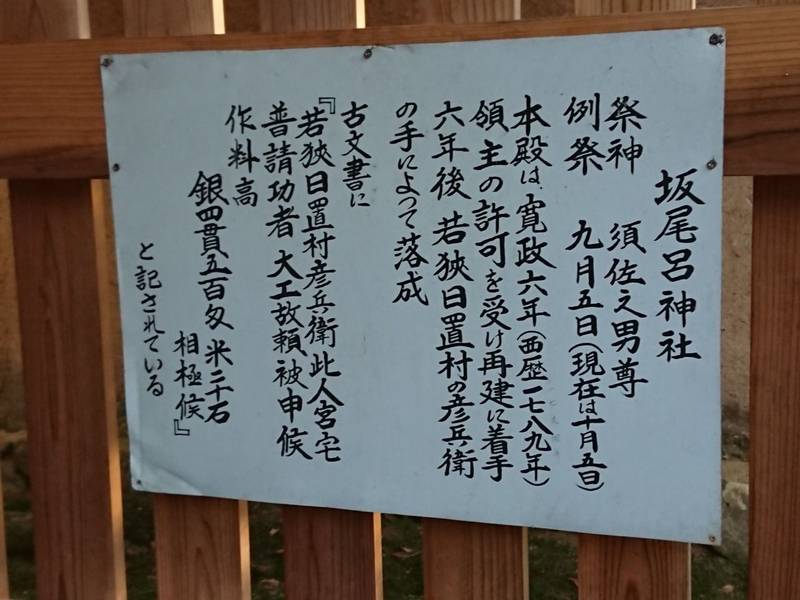 坂尾呂神社
祭神　須佐之男尊
例祭　九月五日(現在は十月五日)
本殿は、寛政六年(西歴一七八九年)
領主の許可を受け再建に着手
六年後 若狭日置村の彦兵衛
の手によって落成
古文書に
『若狹日置村彦兵衛此人宮宅
普請功者 大工故頼被申候
作料高
銀四貫五百匁 米二千石
相極候』
と記されている